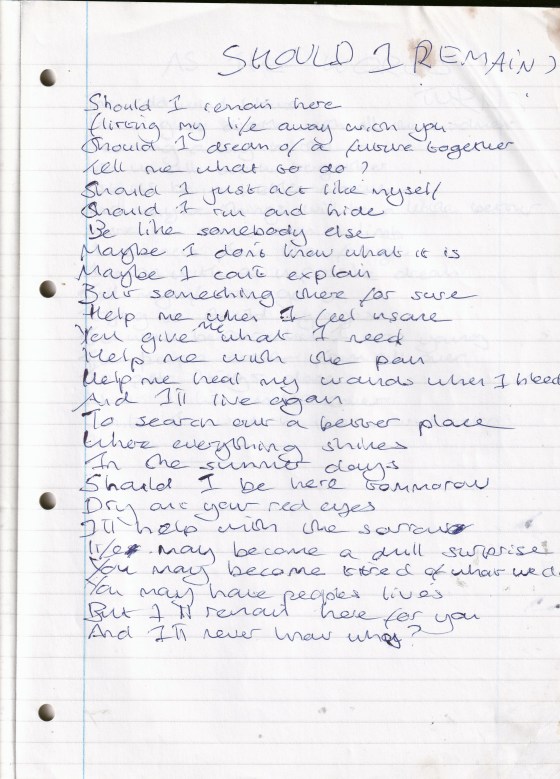 SHOULD I REMAIN?
Should I remain here
flirting my life away with you
Should I dream of a future together
tell me what to do?
Should I just act like myself
Should I run and hide
Be like somebody else
Maybe I don't know what it is
Maybe I can't explain
But something there for sure
Help me when I feel insane
You give me what I need
Help me with the pain
Help me heal my wounds when I bleed
And I'll live again
To search out a better place
Where everything shines
In the summer days
Should I be here tommorow
Dry are your red eyes
I'll help with the sorrow
life may become a dull surprise
You may become tired of what we d
You may have peoples lives
But I'll remain here for you
And I'll never know why?